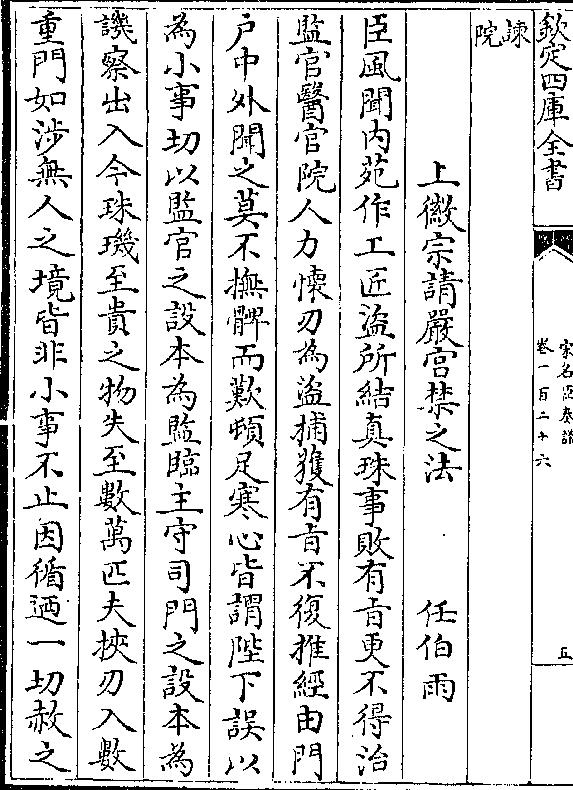 欽定四庫全書
宋名臣奏議
卷一百二十六
五
諫
院
上徽宗請嚴宫禁之法 任伯雨
臣風聞内苑作工匠盜所結真珠事敗有㫖更不得治
監官醫官院人力懷刃為盜捕獲有㫖不復推經由門
户中外聞之莫不撫髀而歎頓足寒心皆謂陛下誤以
為小事切以監官之設本為監臨主守司門之設本為
譏察出入今珠璣至貴之物失至數萬匹夫挾刃入數
重門如涉無人之境皆非小事不止因循廼一切赦之